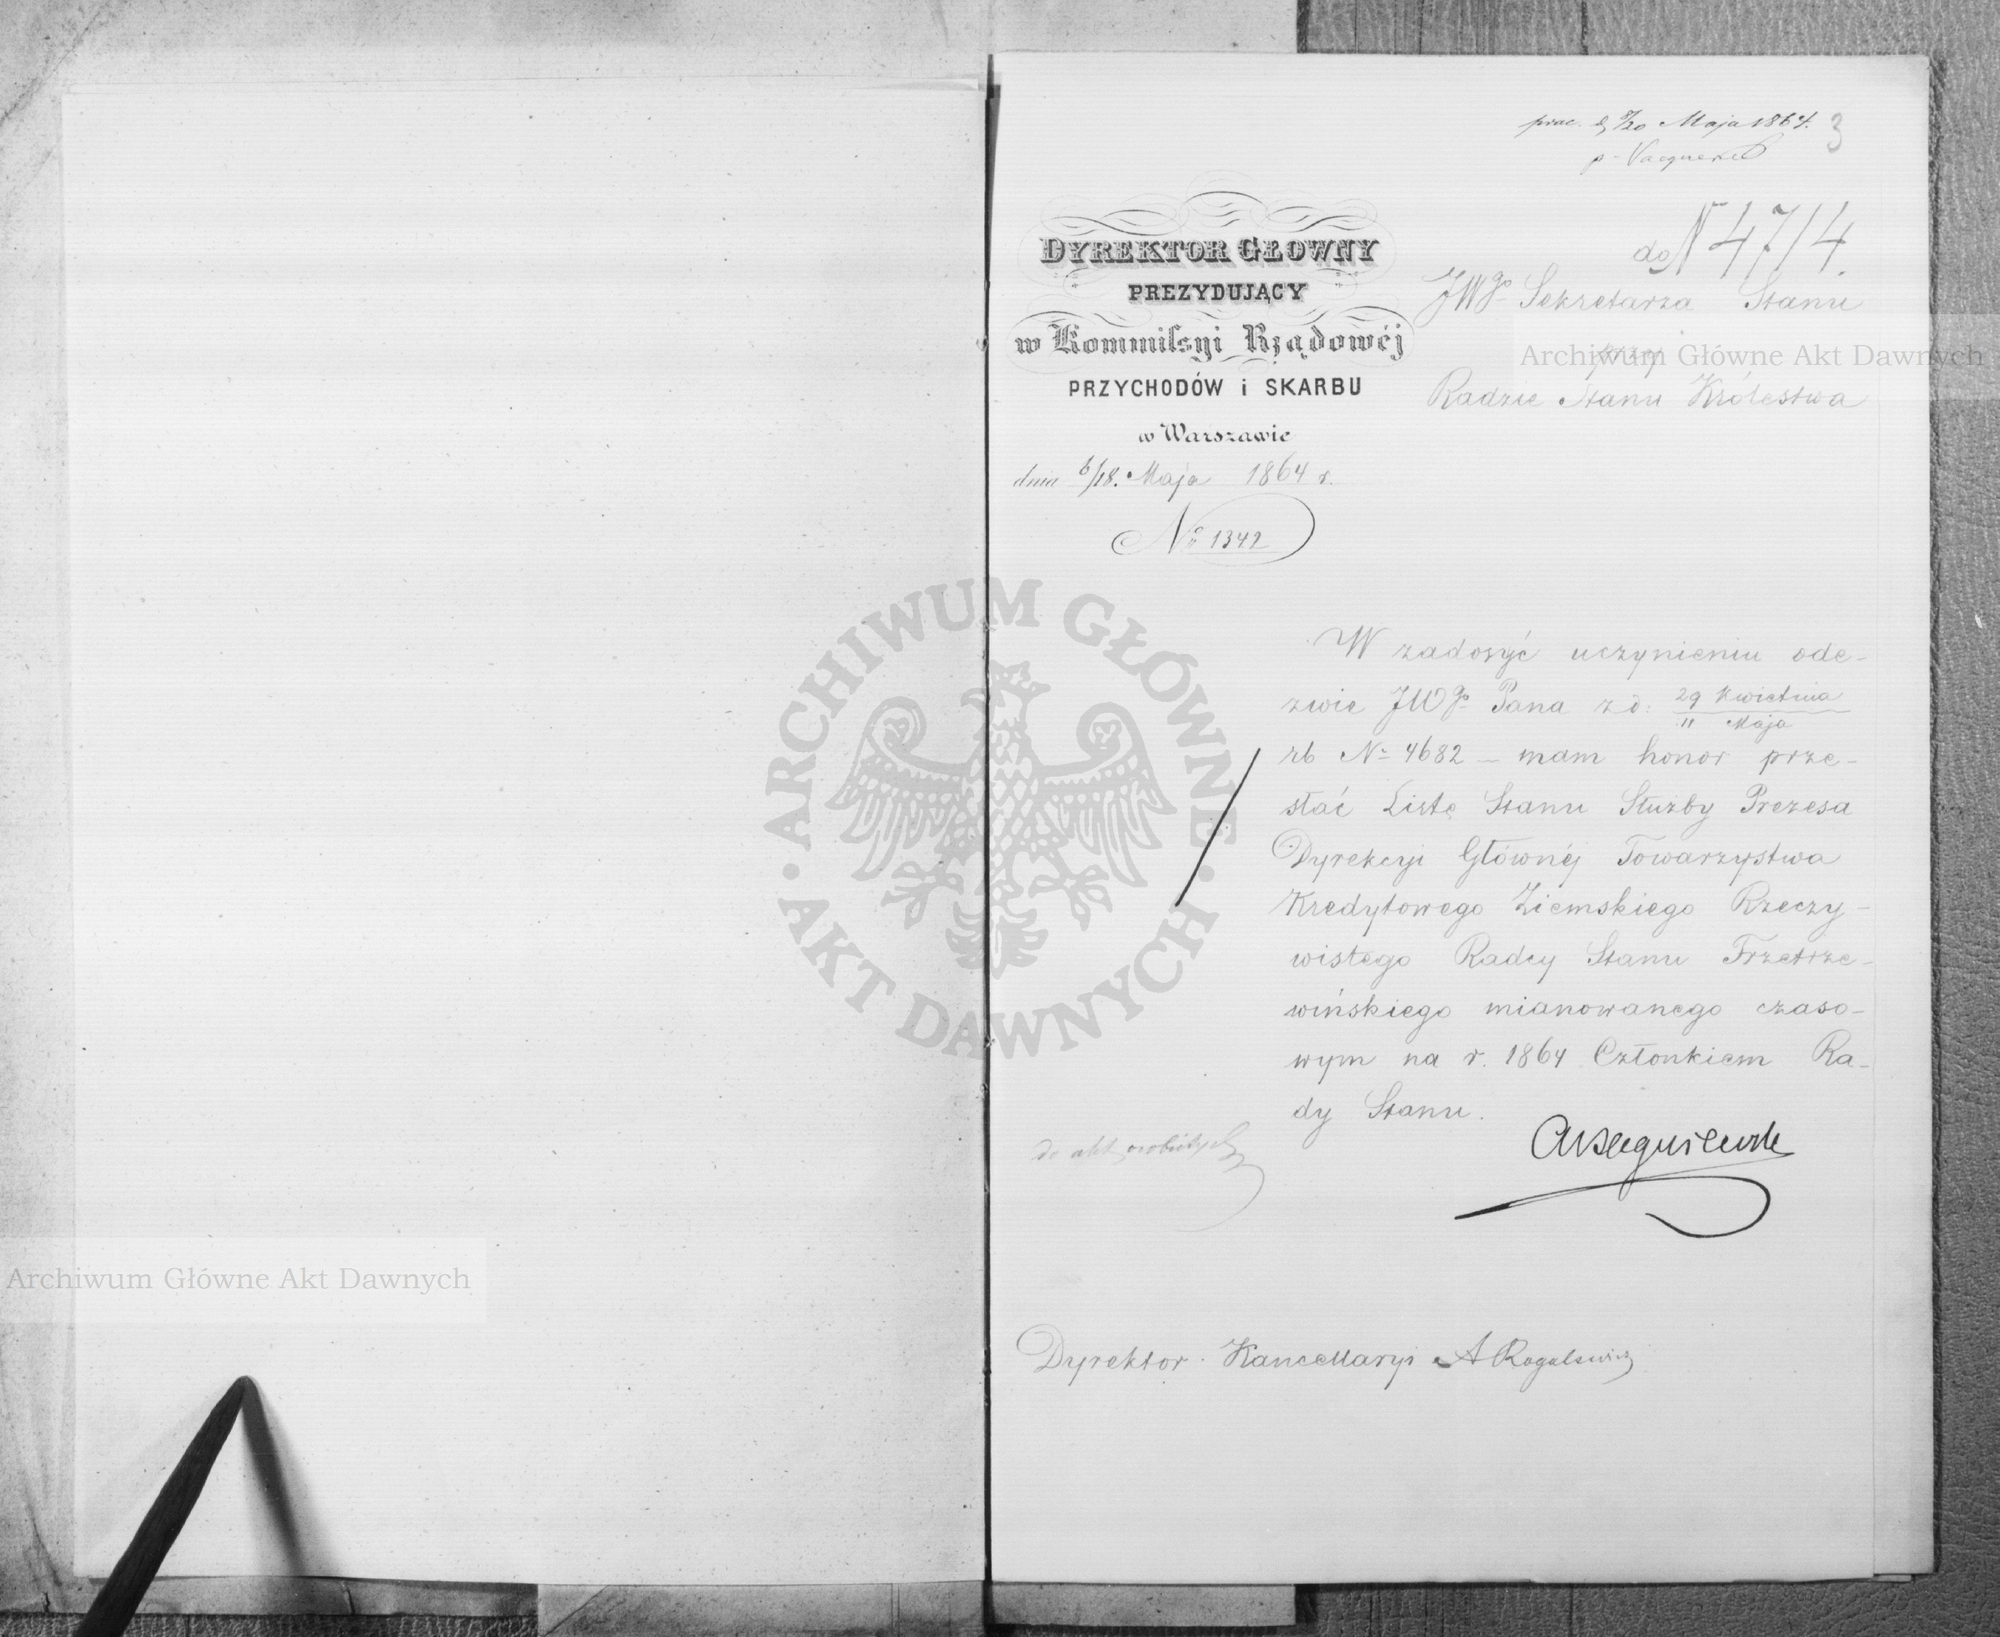 8/20 Maja 1864.
3
DYREKTOR GŁOWNY
PREZYDUJĄCY
w Kommissyi Rządowéj
PRZYCHODÓW i SKARBU
w Warszawie
dnia 6/18. Maja 1864 r.
No 1342
do N 4714.
JWgo Sekretarza Stanu
przy
Radzie Stanu Królestwa
W zadosyć uczynieniu ode-
zwie JWgo Pana z d: 29 Kwietnia / 11 Maja
rb No 4682 – mam honor prze-
słać Listę Stanu Służby Prezesa
Dyrekcyi Głównéj Towarzystwa
Kredytowego Ziemskiego Rzeczy-
wistego Radcy Stanu Trzetrze-
wińskiego mianowanego czaso-
wym na r. 1864 Członkiem Ra-
dy Stanu.
do akt osobistych
Dyrektor Kancellaryi A Rogalewicz
Archiwum Główne Akt Dawnych
Archiwum Główne Akt Dawnych
ARCHIWUM GŁÓWNE · AKT DAWNYCH ·